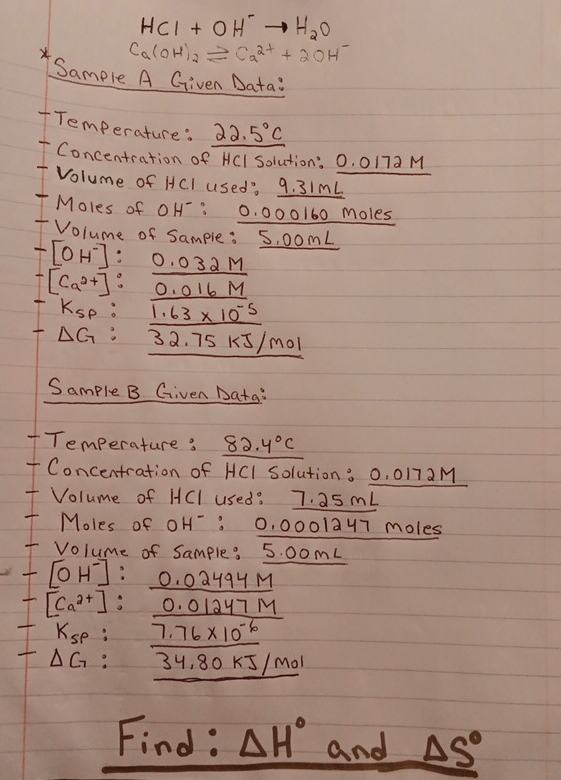 HCl + OH⁻ → H₂O
Ca(OH)₂ ⇌ Ca²⁺ + 2OH⁻
* Sample A Given Data:
- Temperature: 22.5°C
- Concentration of HCl Solution: 0.0172 M
- Volume of HCl used: 9.31mL
- Moles of OH⁻: 0.000160 moles
- Volume of Sample: 5.00mL
- [OH⁻]: 0.032 M
- [Ca²⁺]: 0.016 M
- Ksp: 1.63 x 10⁻⁵
- ΔG: 32.75 KJ/mol
Sample B Given Data:
- Temperature: 82.4°C
- Concentration of HCl Solution: 0.0172M
- Volume of HCl used: 7.25 mL
- Moles of OH⁻: 0.0001247 moles
- Volume of Sample: 5.00mL
- [OH⁻]: 0.02494 M
- [Ca²⁺]: 0.01247 M
- Ksp: 7.76 x 10⁻⁶
- ΔG: 34.80 KJ/mol
Find: ΔH° and ΔS°